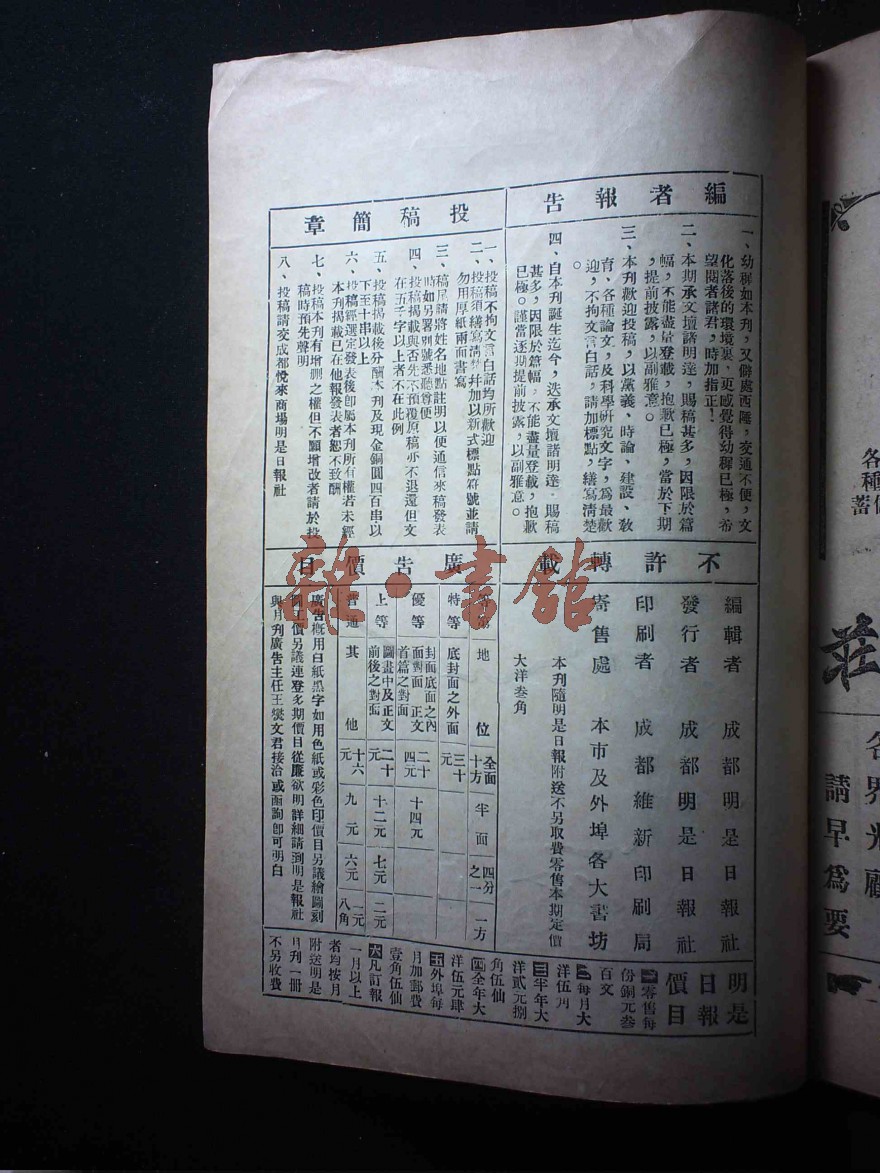 編者報告
一、幼穉如本刊，又僻處西陲，交通不便，文
化落後的環境裏，更感覺得幼穉已極，希
望閱者諸君，時加指正！
二、本期承文壇諸明達，賜稿甚多，因限於篇
幅，不能盡量登載，抱歉已極，當於下期
，提前披露，以副雅意。
三、本刊歡迎投稿，以黨義、時論、建設、敎
育、各種論文，及科學硏究文字，爲最歡
迎，不拘文言白話，請加標點，繕寫淸楚
。
四、自本刊誕生迄今，迭承文壇諸明達，賜稿
甚多，因限於篇幅，不能盡量登載，抱歉
已極。謹當逐期提前披露，以副雅意。
投稿簡章
一、投稿不拘文言白話均所歡迎
二、投稿須繕寫淸楚幷加以新式標點符號並請
勿用厚紙兩面書寫
三、稿尾請將姓名地點註明以便通信來稿發表
時如另署別號悉聽尊便
四、投稿揭載與否先不預覆原稿亦不退還但文
在五千字以上者不在此例
五、投稿揭載後分酬本刊及現金銅圓四百串以
下至十串以上
六、投稿經選定發表後卽屬本刊所有權若未經
本刊揭載已在他報發表者恕不致酬
七、投稿本刊有增删之權但不願增改者請於投
稿時預先聲明
八、投稿請交成都悅來商場明是日報社
不許轉載
編輯者 成都明是日報社
發行者 成都明是日報社
印刷者 成都維新印刷局
寄售處 本市及外埠各大書坊
本刊隨明是日報附送不另取費零售本期定價
大洋叁角
廣告價目
地位 全面 半面 四分之一 一方
特等 底封面之外面 三十元
優等 封面底面之內面對面 正文首篇之對面 二十四元 十四元
上等 圖畫中及正文前後之對面 二十元 十二元 七元 二元
普通 其他 十六元 九元 六元 一元八角
廣告概用白紙黑字如用色紙或彩色印價目另議繪圖刻
圖工價另議連登多期價目從廉欲明詳細請到明是報社
與月刊廣告主任王爕文君接洽或函詢卽可明白
明是日報價目
一零售每
份銅元叁
百文
二每月大
洋伍角
三半年大
洋貳元捌
角伍仙
四全年大
洋伍元肆
五外埠每
月加郵費
壹角伍仙
六凡訂報
一月以上
者均按月
附送明是
月刊一冊
不另收費
雜·書館
各種
莊
各界光顧
請早爲要